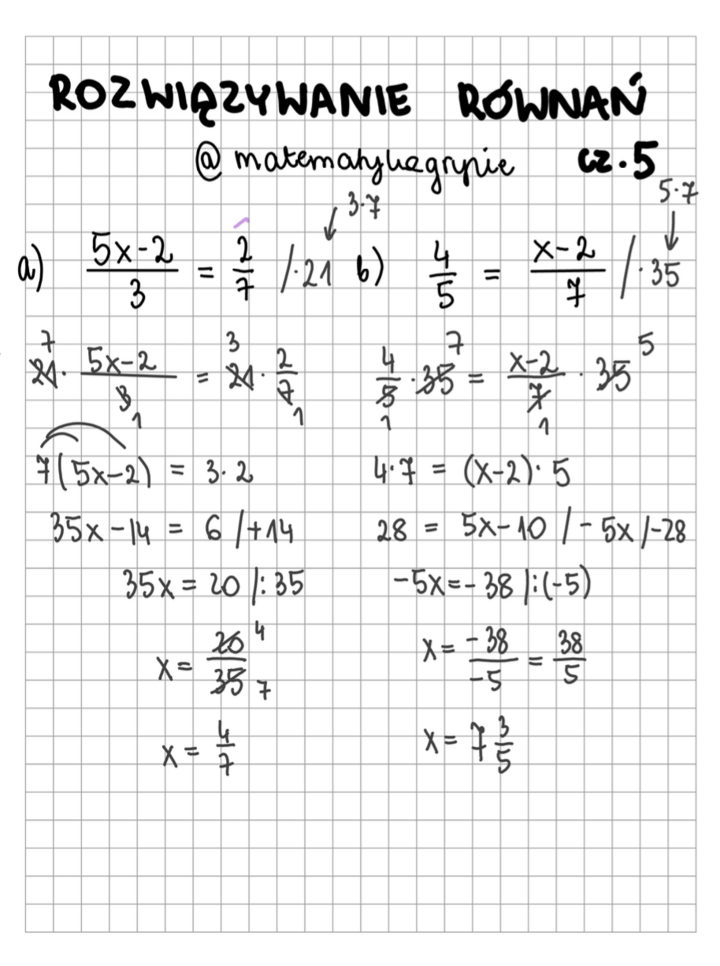 ROZWIĄZYWANIE RÓWNAŃ
@matematykagrypie cz.5
a) \frac{5x-2}{3} = \frac{2}{7} /·21 3·7
7 21 · \frac{5x-2}{3} 1 = 3 21 · \frac{2}{7} 1
7(5x-2) = 3·2
35x-14 = 6 /+14
35x = 20 /:35
x = \frac{20}{35} 4 7
x = \frac{4}{7}
b) \frac{4}{5} = \frac{x-2}{7} /·35 5·7
\frac{4}{5} 1 · 35 7 = \frac{x-2}{7} 1 · 35 5
4·7 = (x-2)·5
28 = 5x-10 /-5x /-28
-5x=-38 /:(-5)
x = \frac{-38}{-5} = \frac{38}{5}
x = 7\frac{3}{5}